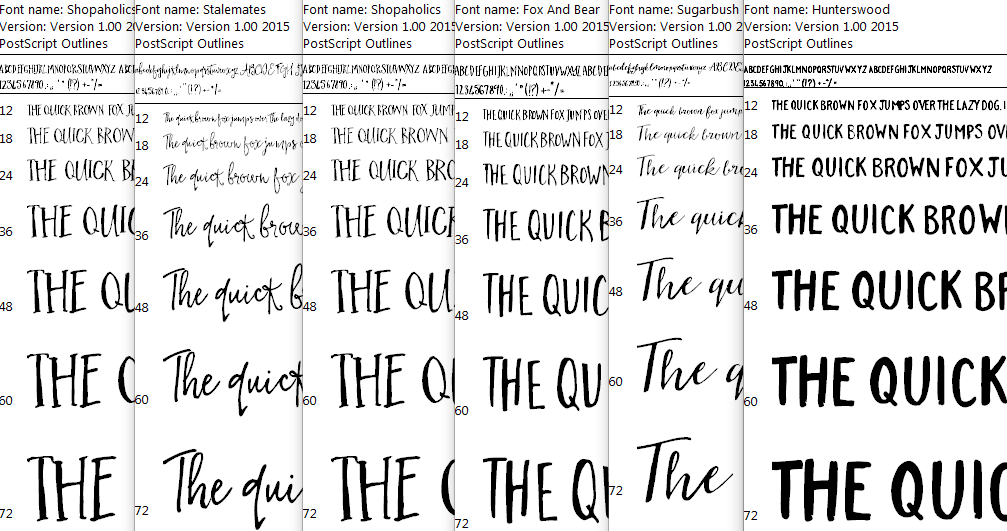 Font name: Shopaholics
Version: Version 1.00 2
PostScript Outlines
ABCDEFGHIJKLMNOPQRSTUVWXYZ ABC
1234567890.:,; ' " (!?) +-*/=
12 THE QUICK BROWN FOX J
18 THE QUICK BROW
24 THE QUICK B
36 THE QUIC
48 THE QU
60 THE
72 THE
Font name: Stalemates
Version: Version 1.00 2015
PostScript Outlines
abcdefghijklmnopqrstuvwxyz ABCDEFGHIJ
1234567890.:,; ' " (!?) +-*/=
12 The quick brown fox jumps over the lazy do
18 The quick brown fox jumps
24 The quick brown fox
36 The quick brow
48 The quick b
60 The quick
72 The qui
Font name: Shopaholics
Version: Version 1.00 2015
PostScript Outlines
ABCDEFGHIJKLMNOPQRSTUVWXYZ ABCD
1234567890.:,; ' " (!?) +-*/=
12 THE QUICK BROWN FOX JUM
18 THE QUICK BROWN
24 THE QUICK BRO
36 THE QUICK
48 THE QU
60 THE Q
72 THE
Font name: Fox And Bear
Version: Version 1.00 2015
PostScript Outlines
ABCDEFGHIJKLMNOPQRSTUVWXYZ ABCDEF
1234567890.:,; ' " (!?) +-*/=
12 THE QUICK BROWN FOX JUMPS OVE
18 THE QUICK BROWN FOX
24 THE QUICK BROWN
36 THE QUICK B
48 THE QUIC
60 THE QU
72 THE Q
Font name: Sugarbush
Version: Version 1.00 2
PostScript Outlines
12 The quick brown fox jump
18 The quick brown
24 The quick bro
36 The quick
48 The qu
60 The q
72 The
Font name: Hunterswood
Version: Version 1.00 2015
PostScript Outlines
ABCDEFGHIJKLMNOPQRSTUVWXYZ ABCDEFGHIJKLMNOPQRSTUVWXYZ
1234567890.:,; ' " (!?) +-*/=
12 THE QUICK BROWN FOX JUMPS OVER THE LAZY DOG. 1
18 THE QUICK BROWN FOX JUMPS OVER
24 THE QUICK BROWN FOX JU
36 THE QUICK BROWN
48 THE QUICK BR
60 THE QUICK
72 THE QUIC